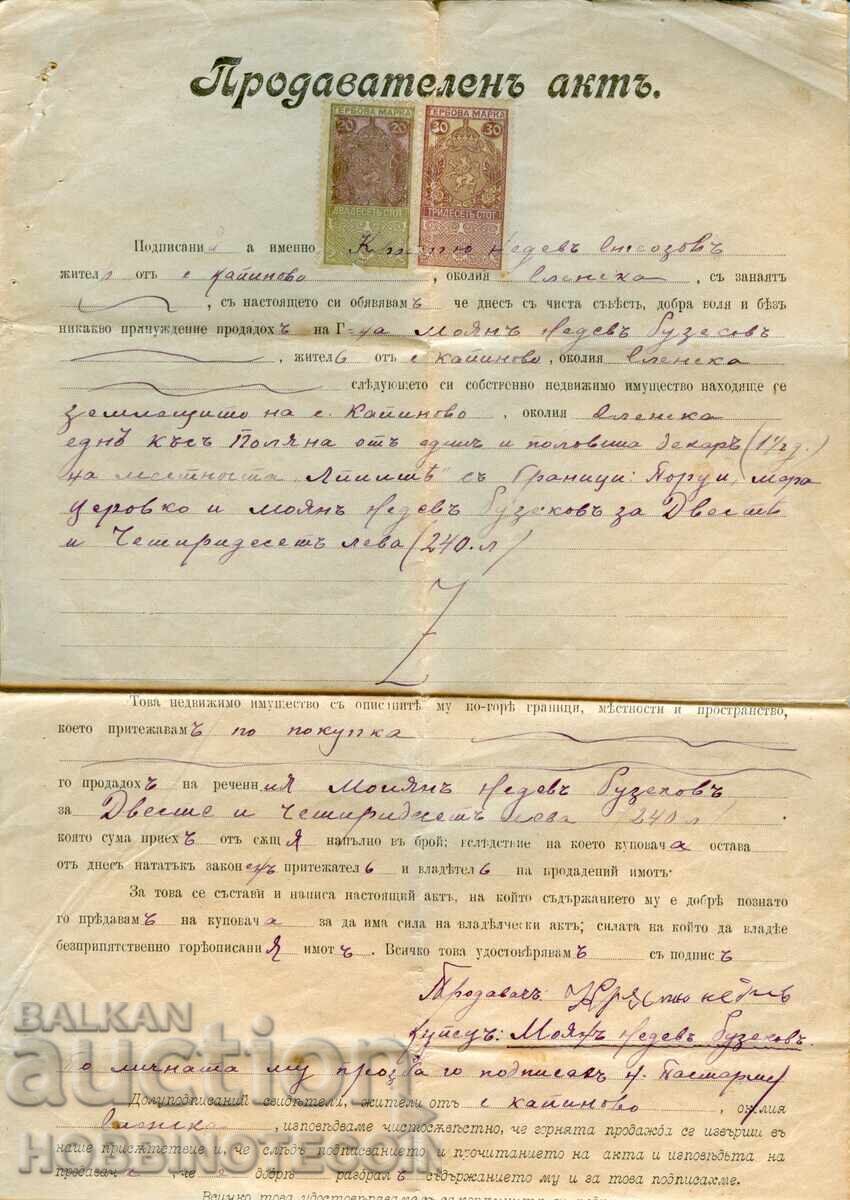 Продавателенъ актъ.
20 20 30 30
ГЕРБОВА МАРКА ГЕРБОВА МАРКА
ДВАДЕСЕТЬ СТОТ. ТРИДЕСЕТЬ СТОТ.
1 1
Подписани а именно Недевъ
жител отъ с Капиново, околия Еленска, съ занаятъ
, съ настоящето си обявявамъ че днесъ съ чиста съвѣсть, добра воля и безъ
никакво принуждение продадохъ на Г-на Моянъ Недевъ Бузековъ
, житель отъ с Капиново, околия Еленска
слѣдующето си собственно недвижимо имущество находяще се
землещито на с. Капиново, околия Еленска
еднъ късъ Поляна отъ единъ и половина декаръ (1½ д.)
на местноста съ Граници: мара
Церовко и моянъ Недевъ Бузековъ за Двестѣ
и Четиридесетъ лева (240.л)
Това недвижимо имущество съ описанитѣ му по-горѣ граници, мѣстности и пространство,
което притежавамъ по покупка
го продадохъ на реченния Моянъ Недевъ Бузековъ
за Двесте и Четиридесетъ лева (240 л)
която сума приехъ отъ сѫщия напълно въ брой; вслѣдствие на което купова а остава
отъ днесъ нататъкъ законенъ притежатель и владѣтель на продадений имотъ.
За това се състави и написа настоящий актъ, на който съдържанието му е добрѣ познато
го прѣдавамъ на купова а за да има сила на владѣлчески актъ; силата на който да владѣе
безприпятственно горѣописания имотъ. Всичко това удостовѣрявамъ съ подписъ
Продавачъ:
Купецъ: Моянъ Недевъ Бузековъ.
По личната му прозба го подписахъ
Долуподписаний свидѣтели, жители отъ с Капиново, околия
Еленска, изповѣдваме чистосърдечно, че горнята продажба се извърши въ
наше присѫтствие и, че слѣдъ подписванието и прочитанието на акта и изповѣдьта на
продава а, че я добрѣ разбралъ съдържанието му и за това подписахме.
BALKAN
auction
HOBBINOTECOIN